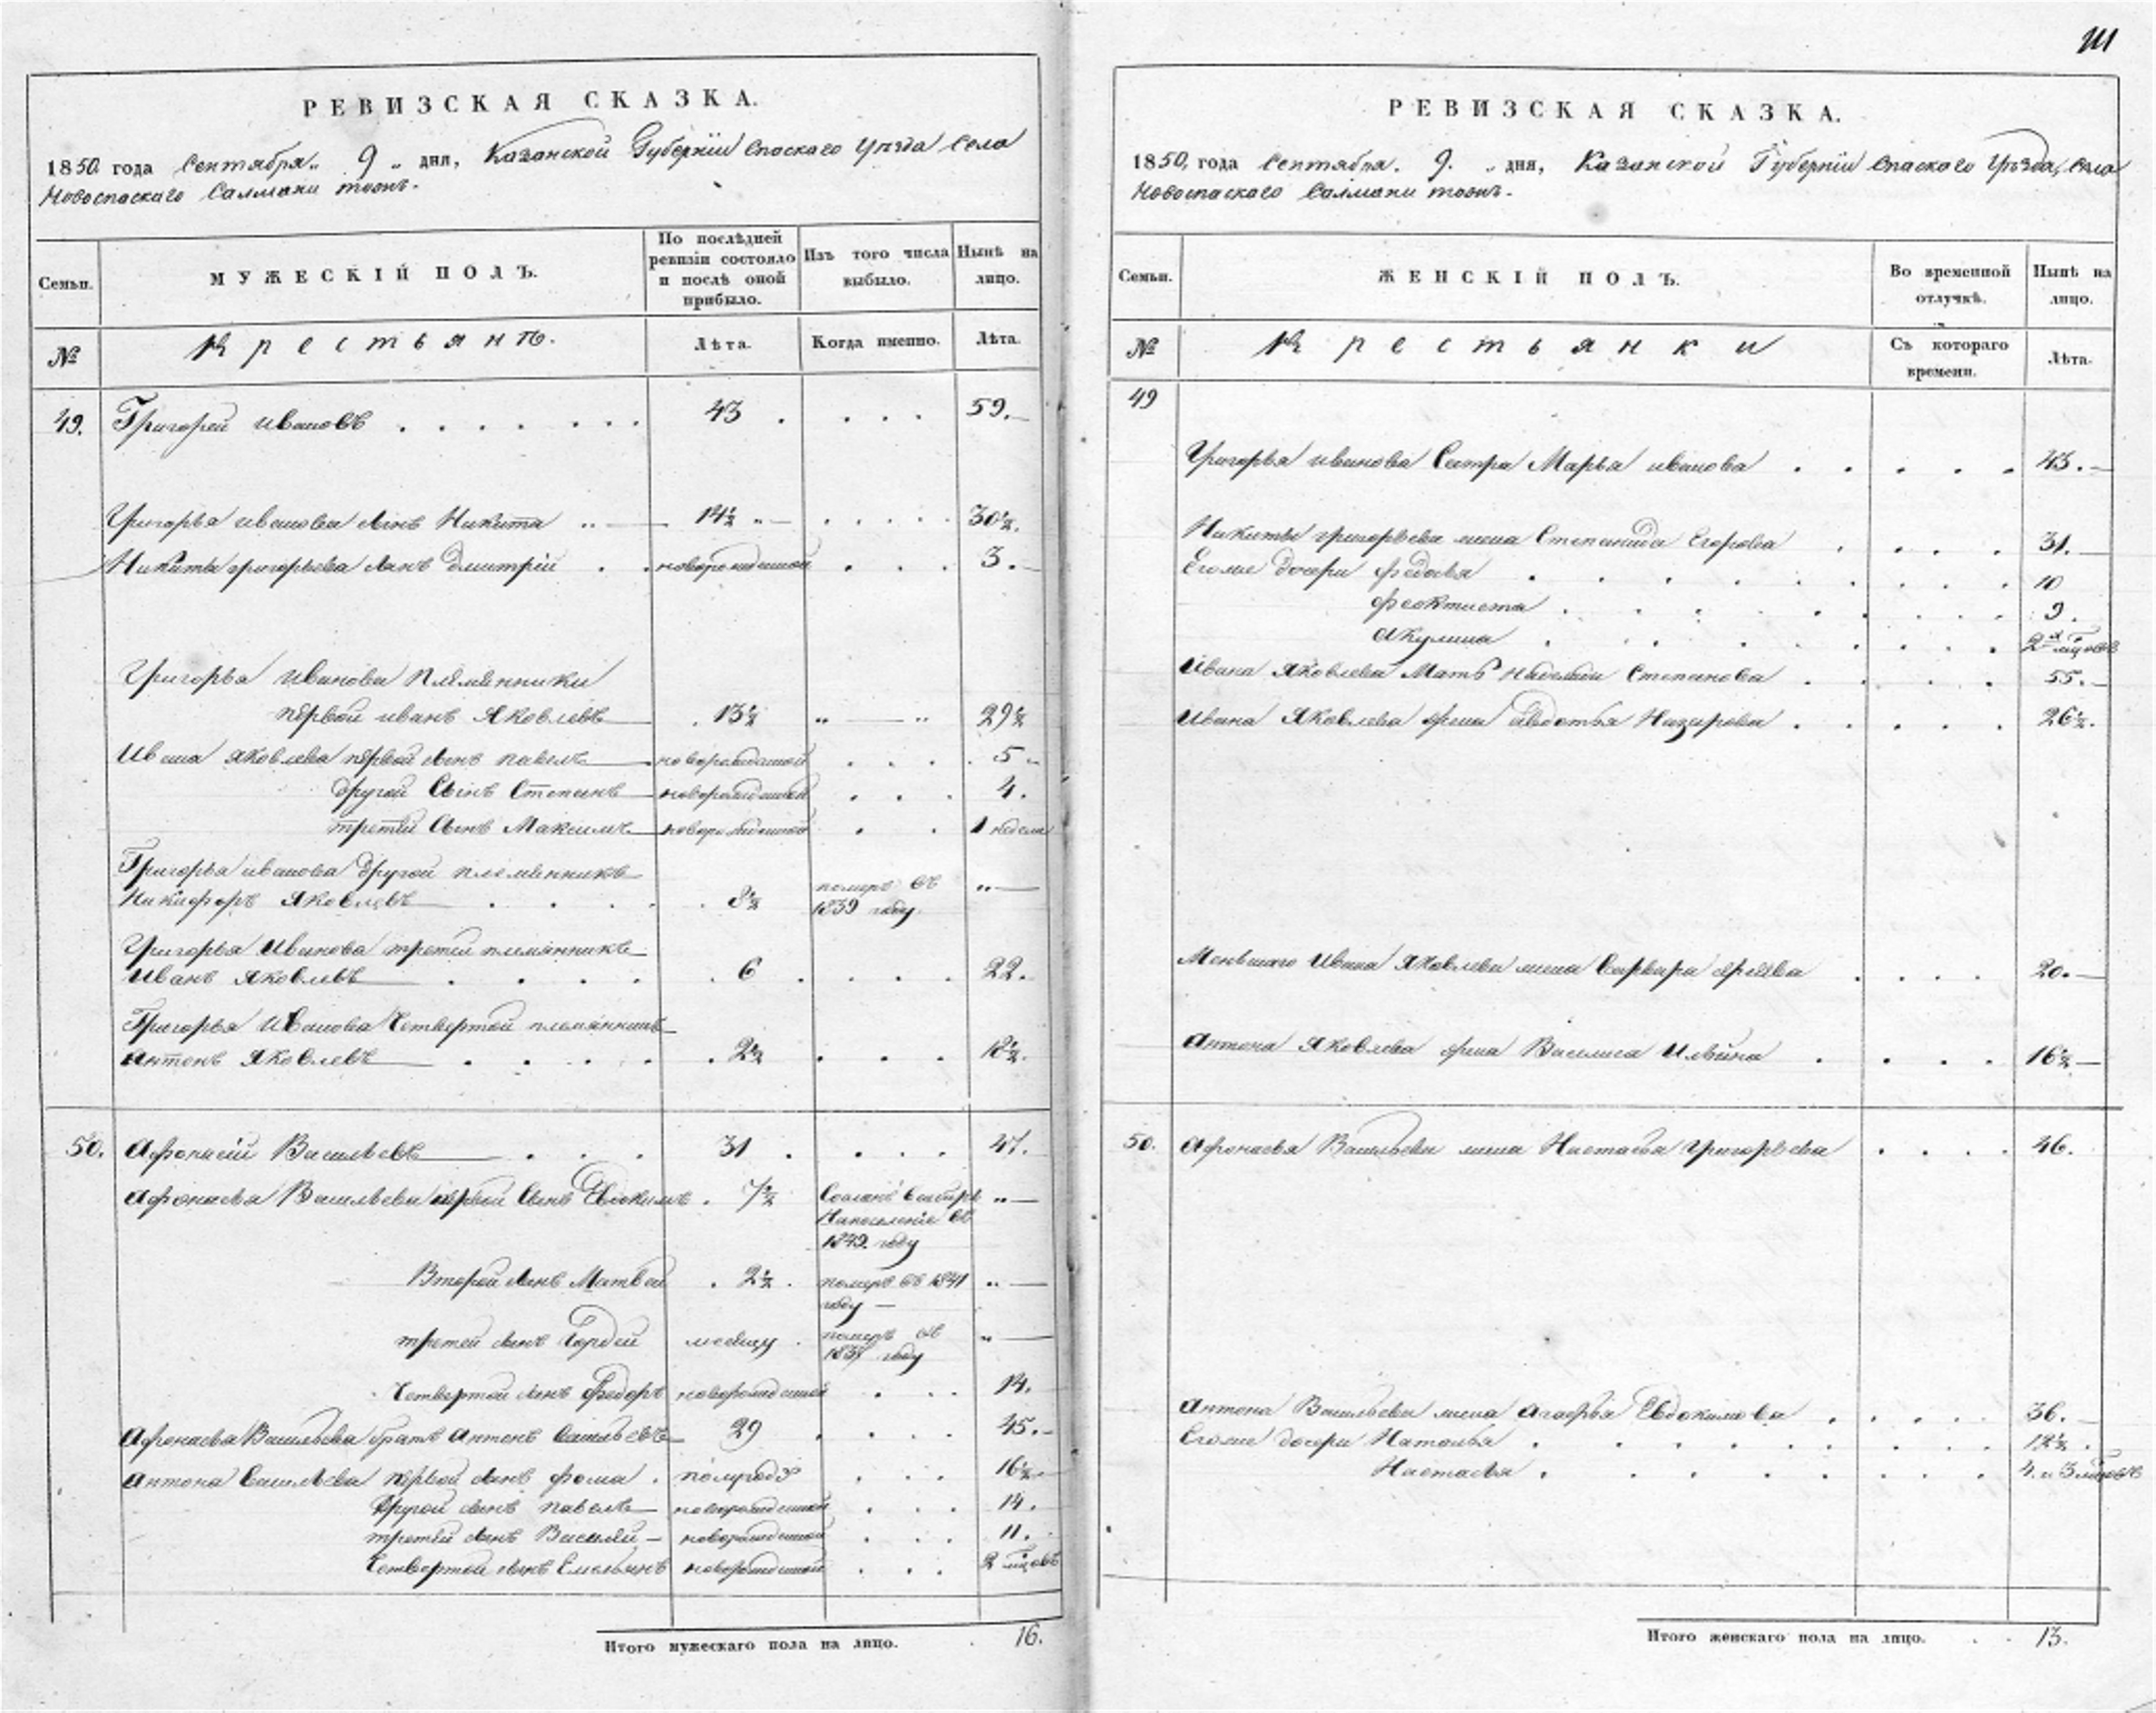 111
РЕВИЗСКАЯ СКАЗКА.
1850 года Сентября 9 дня, Казанской Губернiи Спаскаго Уѣзда Села
Новоспаскаго Салманы тожъ.
Семьи.
МУЖЕСКIЙ ПОЛЪ.
По послѣдней ревизiи состояло и послѣ оной прибыло.
Изъ того числа выбыло.
Нынѣ на лицо.
№
Крестьянъ.
Лѣта.
Когда именно.
Лѣта.
49. Григорей Ивановъ 43 59.
Григорья Иванова сынъ Никита 14½ 30½.
Никиты Григорьева сынъ Дмитрiй новорожденной 3.
Григорья Иванова племянники
первой Иванъ Яковлевъ 13½ 29½
Ивана Яковлева первой сынъ Павелъ новорожденной 5
другой Сынъ Степанъ новорожденной 4.
третiй Сынъ Максимъ новорожденной 1 неделя
Григорья Иванова другой племянникъ
Никифоръ Яковлевъ 8½ померъ въ 1839 году.
Григорья Иванова третей племянникъ
Иванъ Яковлевъ 6 22.
Григорья Иванова Четвертой племянникъ
Антонъ Яковлевъ 2½ 18½.
50. Афонасiй Васильевъ 31 47.
Афонасья Васильева первой Сынъ Евдокимъ 7½ Сосланъ Сибирь Напоселенiе въ 1849. году
Второй сынъ Матвей 2½ померъ въ 1841 году
третей сынъ Гордей месяцу померъ въ году
Четвертой сынъ Федоръ новорожденной 14.
Афонасья Васильева братъ Антонъ Васильевъ 29 45.
Антона Васильева первой сынъ Фома полугода 16½
Другой сынъ Павелъ новорожденной 14.
третей сынъ Василiй новорожденной 11.
Четвертой сынъ Емельянъ новорожденной 2 мцовъ
Итого мужескаго пола на лицо. 16.
РЕВИЗСКАЯ СКАЗКА.
1850, года Сентября. 9. дня, Казанской Губернiи Спаскаго Уѣзда, Села
Новоспаскаго Салманы тожъ.
Семьи.
ЖЕНСКIЙ ПОЛЪ.
Во временной отлучкѣ.
Нынѣ на лицо.
№
Крестьянки
Съ котораго времени.
Лѣта.
49
Григорья Иванова Сестра Марья Иванова 43.
Никиты Григорьева жена Степанида Егорова 31.
Егоже дочери Федосья 10
Феоктиста 9.
Акулина 2 мцовъ
Ивана Яковлева Мать Надежда Степанова 55.
Ивана Яковлева жена Авдотья Назарова 26½.
Меньшаго Ивана Яковлева жена Варвара 20.
Антона Яковлева жена Василиса Ильина 16½
50. Афонасья Васильева жена Настасья Григорьева 46.
Антона Васильева жена Агафья Евдокимова 36.
Егоже дочери Наталья 12½.
Настасья 4. и 3 мцовъ
Итого женскаго пола на лицо. 13.